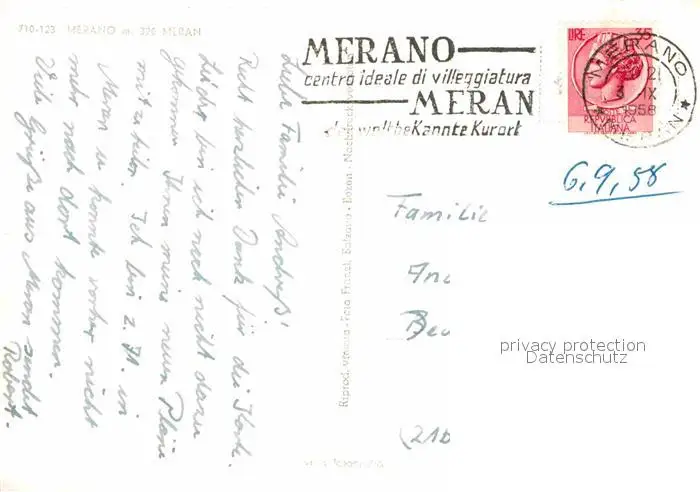 710-123 MERANO m. 320 MERAN
MERANO
centro ideale di villeggiatura
MERAN
der weltbekannte Kurort
LIRE
REPVBBLICA
ITALIANA
MERANO
21
3 IX
1958
6.9.58
Liebe Familie
Recht herzlichen Dank für die Karte.
Leider bin ich noch nicht dazu
gekommen Ihnen meine neuen Pläne
mit zu teilen. Ich bin z. Zt. in
Meran u. konnte vorher nicht
mehr nach dort kommen.
Viele Grüße aus Meran sendet
Robert.
Riprod. vietata - Foto Franzl, Bolzano - Bozen -
Familie
(21b
privacy protection
Datenschutz